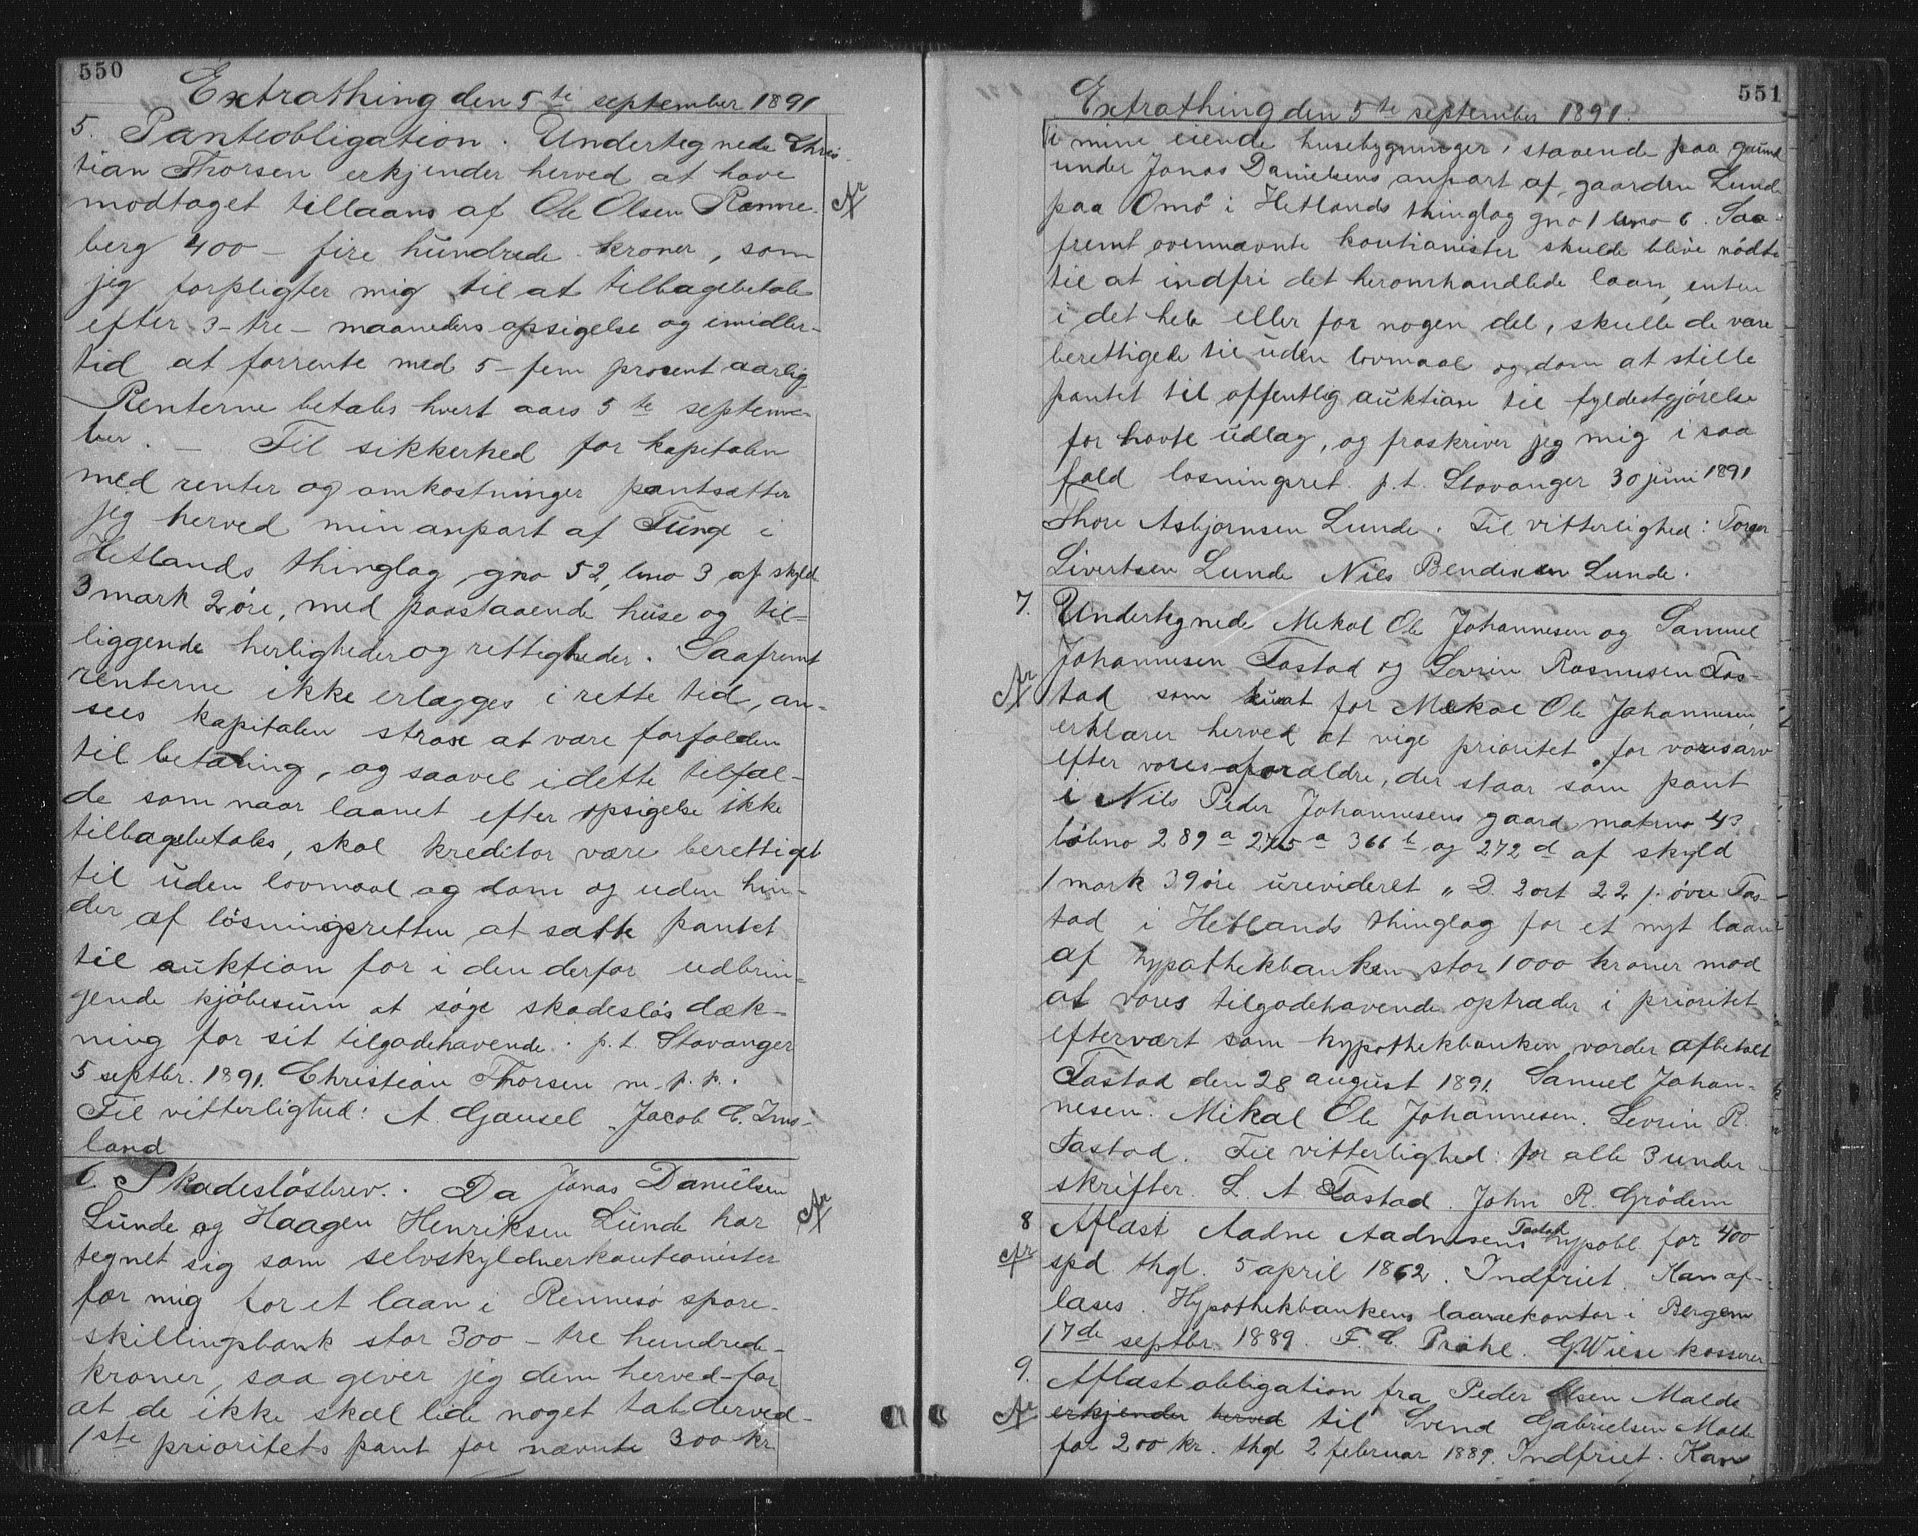 550
Extrathing den 5te september 1891
5. Panteobligation. Undertegnede Chris-
tian Thorsen erkjender herved at have
modtaget tillaans af Ole Olsen Renne-
berg 400 – fire hundrede kroner, som
jeg forpligter mig til at tilbagebetale
efter 3 – tre – maaneders opsigelse og imidler-
tid at forrente med 5 – fem procent aarlig
Renterne betales hvert aars 5te septem-
ber. – Til sikkerhed for kapitalen
med renter og omkostninger pantsætter
jeg herved min anpart af Tunge i
Hetlands thinglag gno 52, bno 3 af skyld
3 mark 2 øre, med paastaaende huse og til-
liggende herligheder og rettigheder. Saafremt
renterne ikke erlægges i rette tid, an-
sees kapitalen strax at være forfalden
til betaling, og saavel i dette tilfæl-
de som naar laanet efter opsigelse ikke
tilbagebetales, skal kreditor være berettiget
til uden lovmaal og dom og uden hin-
der af løsningsretten at sætte pantet
til auktion for i den derfor udbrin-
gende kjøbesum at søge skadesløs dæk-
ning for sit tilgodehavende. p.t. Stavanger
5 septbr. 1891. Christian Thorsen m. p. p.
Til vitterlighed: A. Gausel. Jacob C. Ims-
land
6. Skadesløsbrev. Da Jonas Danielsen
Lunde og Haagen Henriksen Lunde har
tegnet sig som selvskyldnerkautionister
for mig for et laan i Rennesø spare-
skillingsbank stor 300 – tre hundrede –
kroner, saa giver jeg dem herved – for
at de ikke skal lide noget tab derved –
1ste prioritets pant for nævnte 300 kr
551
Extrathing den 5te september 1891.
i mine eiende husebygninger, staaende paa grund
under Jonas Danielsens anpart af gaarden Lunde
paa Omø i Hetlands thinglag gno 1 bno 6. Saa-
fremt ovennævnte kautionister skulde blive nødte
til at indfri det heromhandlede laan, enten
i det hele eller for nogen del, skulle de være
berettigede til uden lovmaal og dom at stille
pantet til offentlig auktion til fyldestgjørelse
for havte udlæg, og fraskriver jeg mig i saa
fald løsningsret. p.t. Stavanger 30 juni 1891
Thore Asbjørnsen Lunde. Til vitterlighed: Torger
Sivertsen Lunde Nils Bendixsen Lunde.
7. Undertegnede Mikal Ole Johannesen og Samuel
Johannesen Tastad og Sevrin Rasmusen Tas-
tad som kurat for Mekal Ole Johannesen,
erklærer herved at vige prioritet for vores arv
efter vores forældre, der staar som pant
i Nils Peder Johannesens gaard matrno 43
løbno 289a 275a 366b og 272d af skyld
1 mark 39 øre urevideret „ D. 2 ort 22 /. øvre Tas-
tad i Hetlands thinglag for et nyt laan
af hypothekbanken stor 1000 kroner mod
at vores tilgodehavende optræder i prioritet
eftervært som hypothekbanken vorder afbetalt
Tastad den 28 august 1891. Samuel Johan-
nesen. Mikal Ole Johannesen. Sevrin R.
Tastad. Til vitterlighed for alle 3 under-
skrifter L. A. Tastad. John R. Grødem
8 Aflæst Aadne Aadnesens Tastad hypobl. for 400
spd. thgl. 5 april 1862. Indfriet. Kan af-
læses. Hypothekbankens laanekontor i Bergen
17de septbr 1889. F. C. Prahl. G Wiese kasserer
9. Aflæst obligation fra Peder Olsen Malde
erkjender herved til Svend Gabrielsen Malde
for 200 kr. thgl 2 februar 1889. Indfriet. Kan